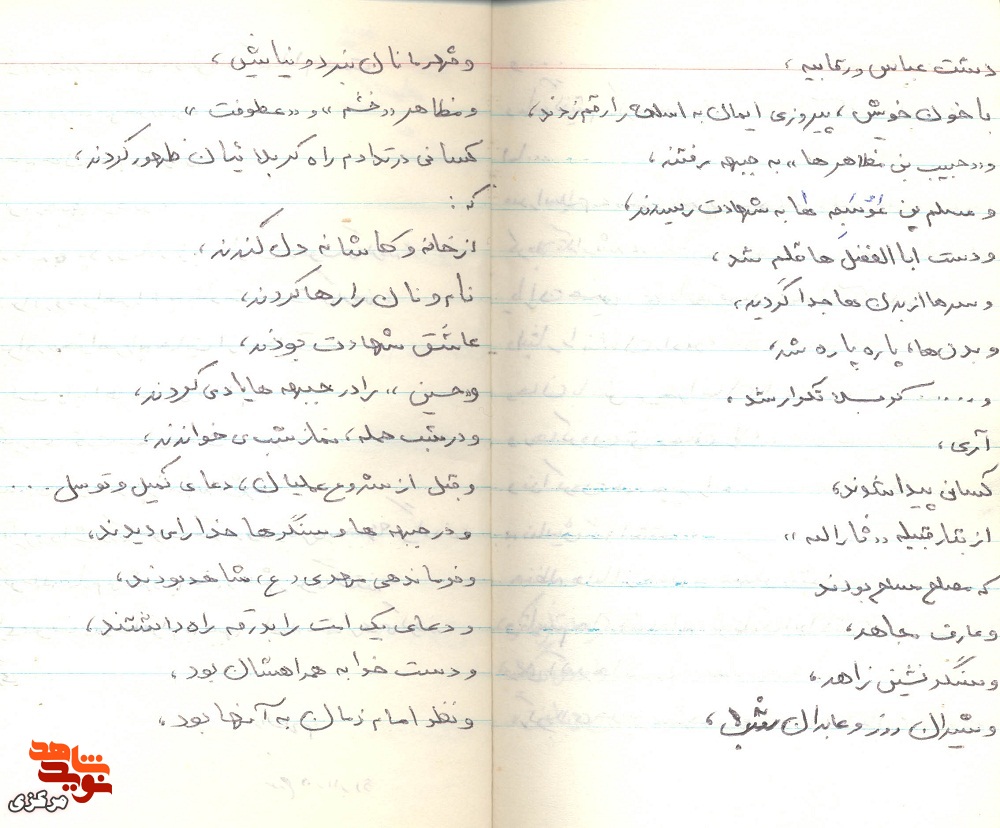 دشت عباس و رقابیه ،
با خون خویش ، پیروزی ایمان به اسلحه را رقم زدند ،
و «حبیب بن مظاهرها» به جبهه رفتند ،
و مسلم بن عَوْسَجه ها به شهادت رسیدند ،
و دست اباالفضل ها قلم شد ،
و سرها از بدن ها جدا گردید ،
و بدن ها ، پاره پاره شد ،
و ..... کربلا تکرار شد .
آری ،
کسانی پیدا شدند ،
از تبار قبیله «ثارالله»
که مصلح مسلح بودند
و عارف مجاهد ،
و سنگر نشین زاهد ،
و شیران روز و عابدان شب ،
و قهرمانان نبرد و نیایش ،
و مظاهر «خشم» و «عطوفت»
کسانی در تداوم راه کربلائیان ظهور کردند ،
که :
از خانه و کاشانه دل کندند ،
نام و نان را رها کردند ،
عاشق شهادت بودند ،
و «حسین» را در جبهه ها یاری کردند ،
و در شب حمله ، نماز شب می خواندند ،
و قبل از شروع عملیات ، دعای کمیل و توسل ...
و در جبهه ها و سنگرها خدا را می دیدند ،
و فرماندهی مهدی (ع) ، شاهد بودند ،
و دعای یک امت را بدرقه راه داشتند ،
و دست خدا به همراهشان بود ،
و نظر امام زمان به آنها بود ،
نوید شاهد
مرکزی